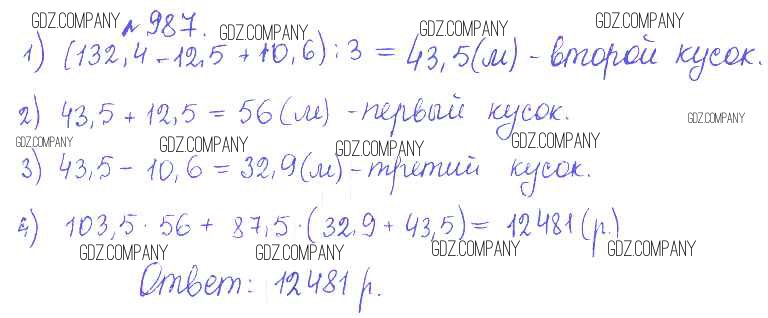 GDZ.COMPANY № 987. GDZ.COMPANY GDZ.COMPANY GDZ.COMPANY
1) (132,4 - 12,5 + 10,6) : 3 = 43,5 (м) - второй кусок.
2) 43,5 + 12,5 = 56 (м) - первый кусок.
GDZ.COMPANY
GDZ.COMPANY GDZ.COMPANY GDZ.COMPANY GDZ.COMPANY
3) 43,5 - 10,6 = 32,9 (м) - третий кусок.
4) 103,5 · 56 + 87,5 · (32,9 + 43,5) = 12481 (р.)
GDZ.COMPANY GDZ.COMPANY GDZ.COMPANY GDZ.COMPANY
Ответ: 12481 р.